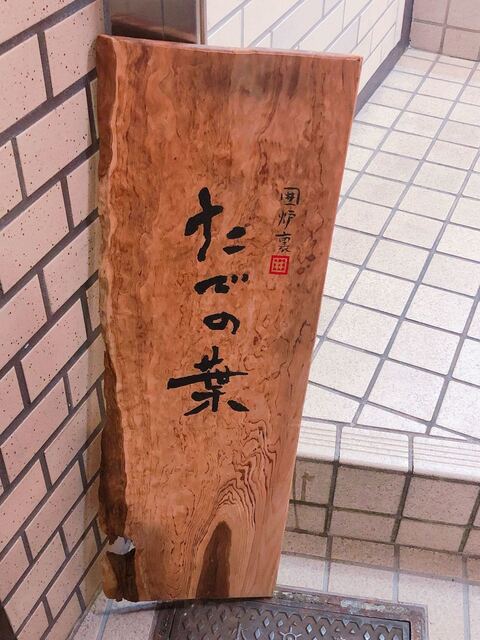 囲炉裏
たでの葉